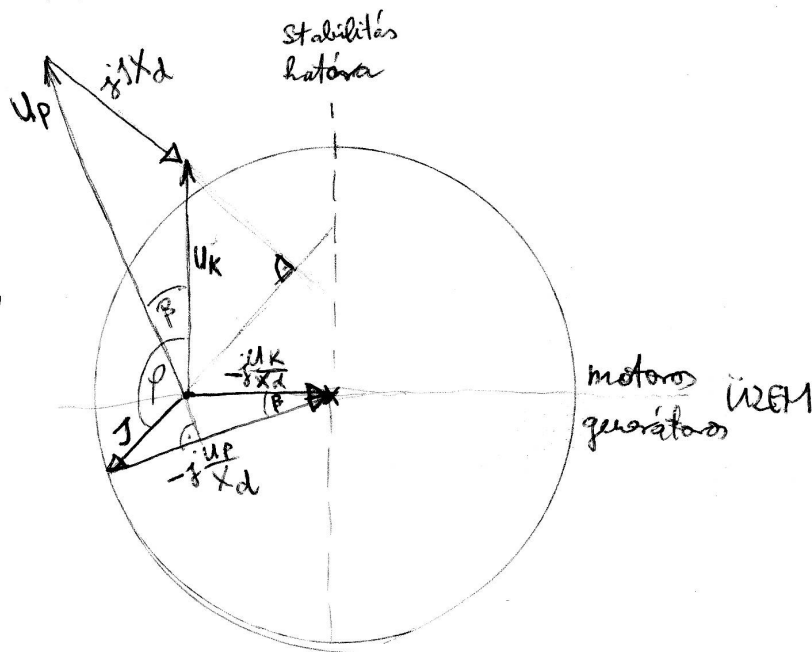 Stabilitás
határa
jIXd
UP
UK
β
φ
-j UK/Xd
β
I
-j UP/Xd
motoros
generátoros
ÜZEM